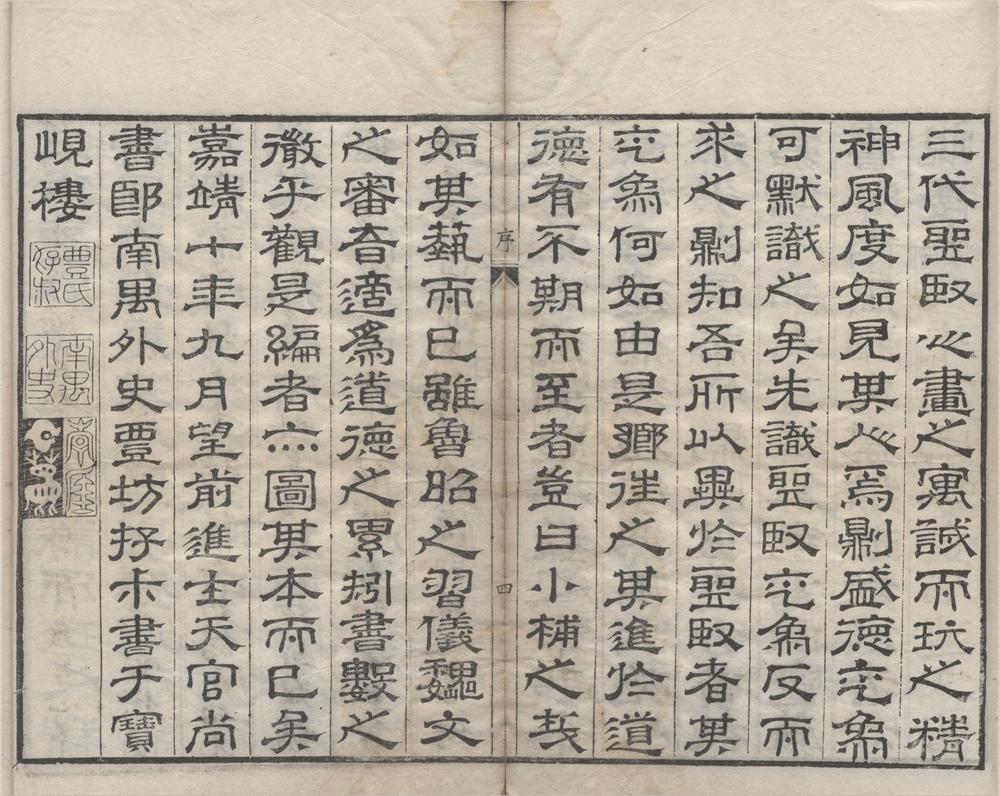 三代聖臤心畫之寓誠而玩之精
神風度如見其人焉則盛德气象
可默識之矣先識聖臤气象反而
求之則知吾所以異於聖臤者其
气象何如由是鄉往之其進於道
德有不期而至者豈曰小補之哉
序
四
如其蓺而已雖魯昭之習儀魏文
之審音適爲道德之累矧書數之
微乎觀是編者亦圖其本而已矣
嘉靖十年九月望前進士天官尚
書郎南禺外史豐坊存尗書于寶
峴樓
豐氏存叔
南禺外史